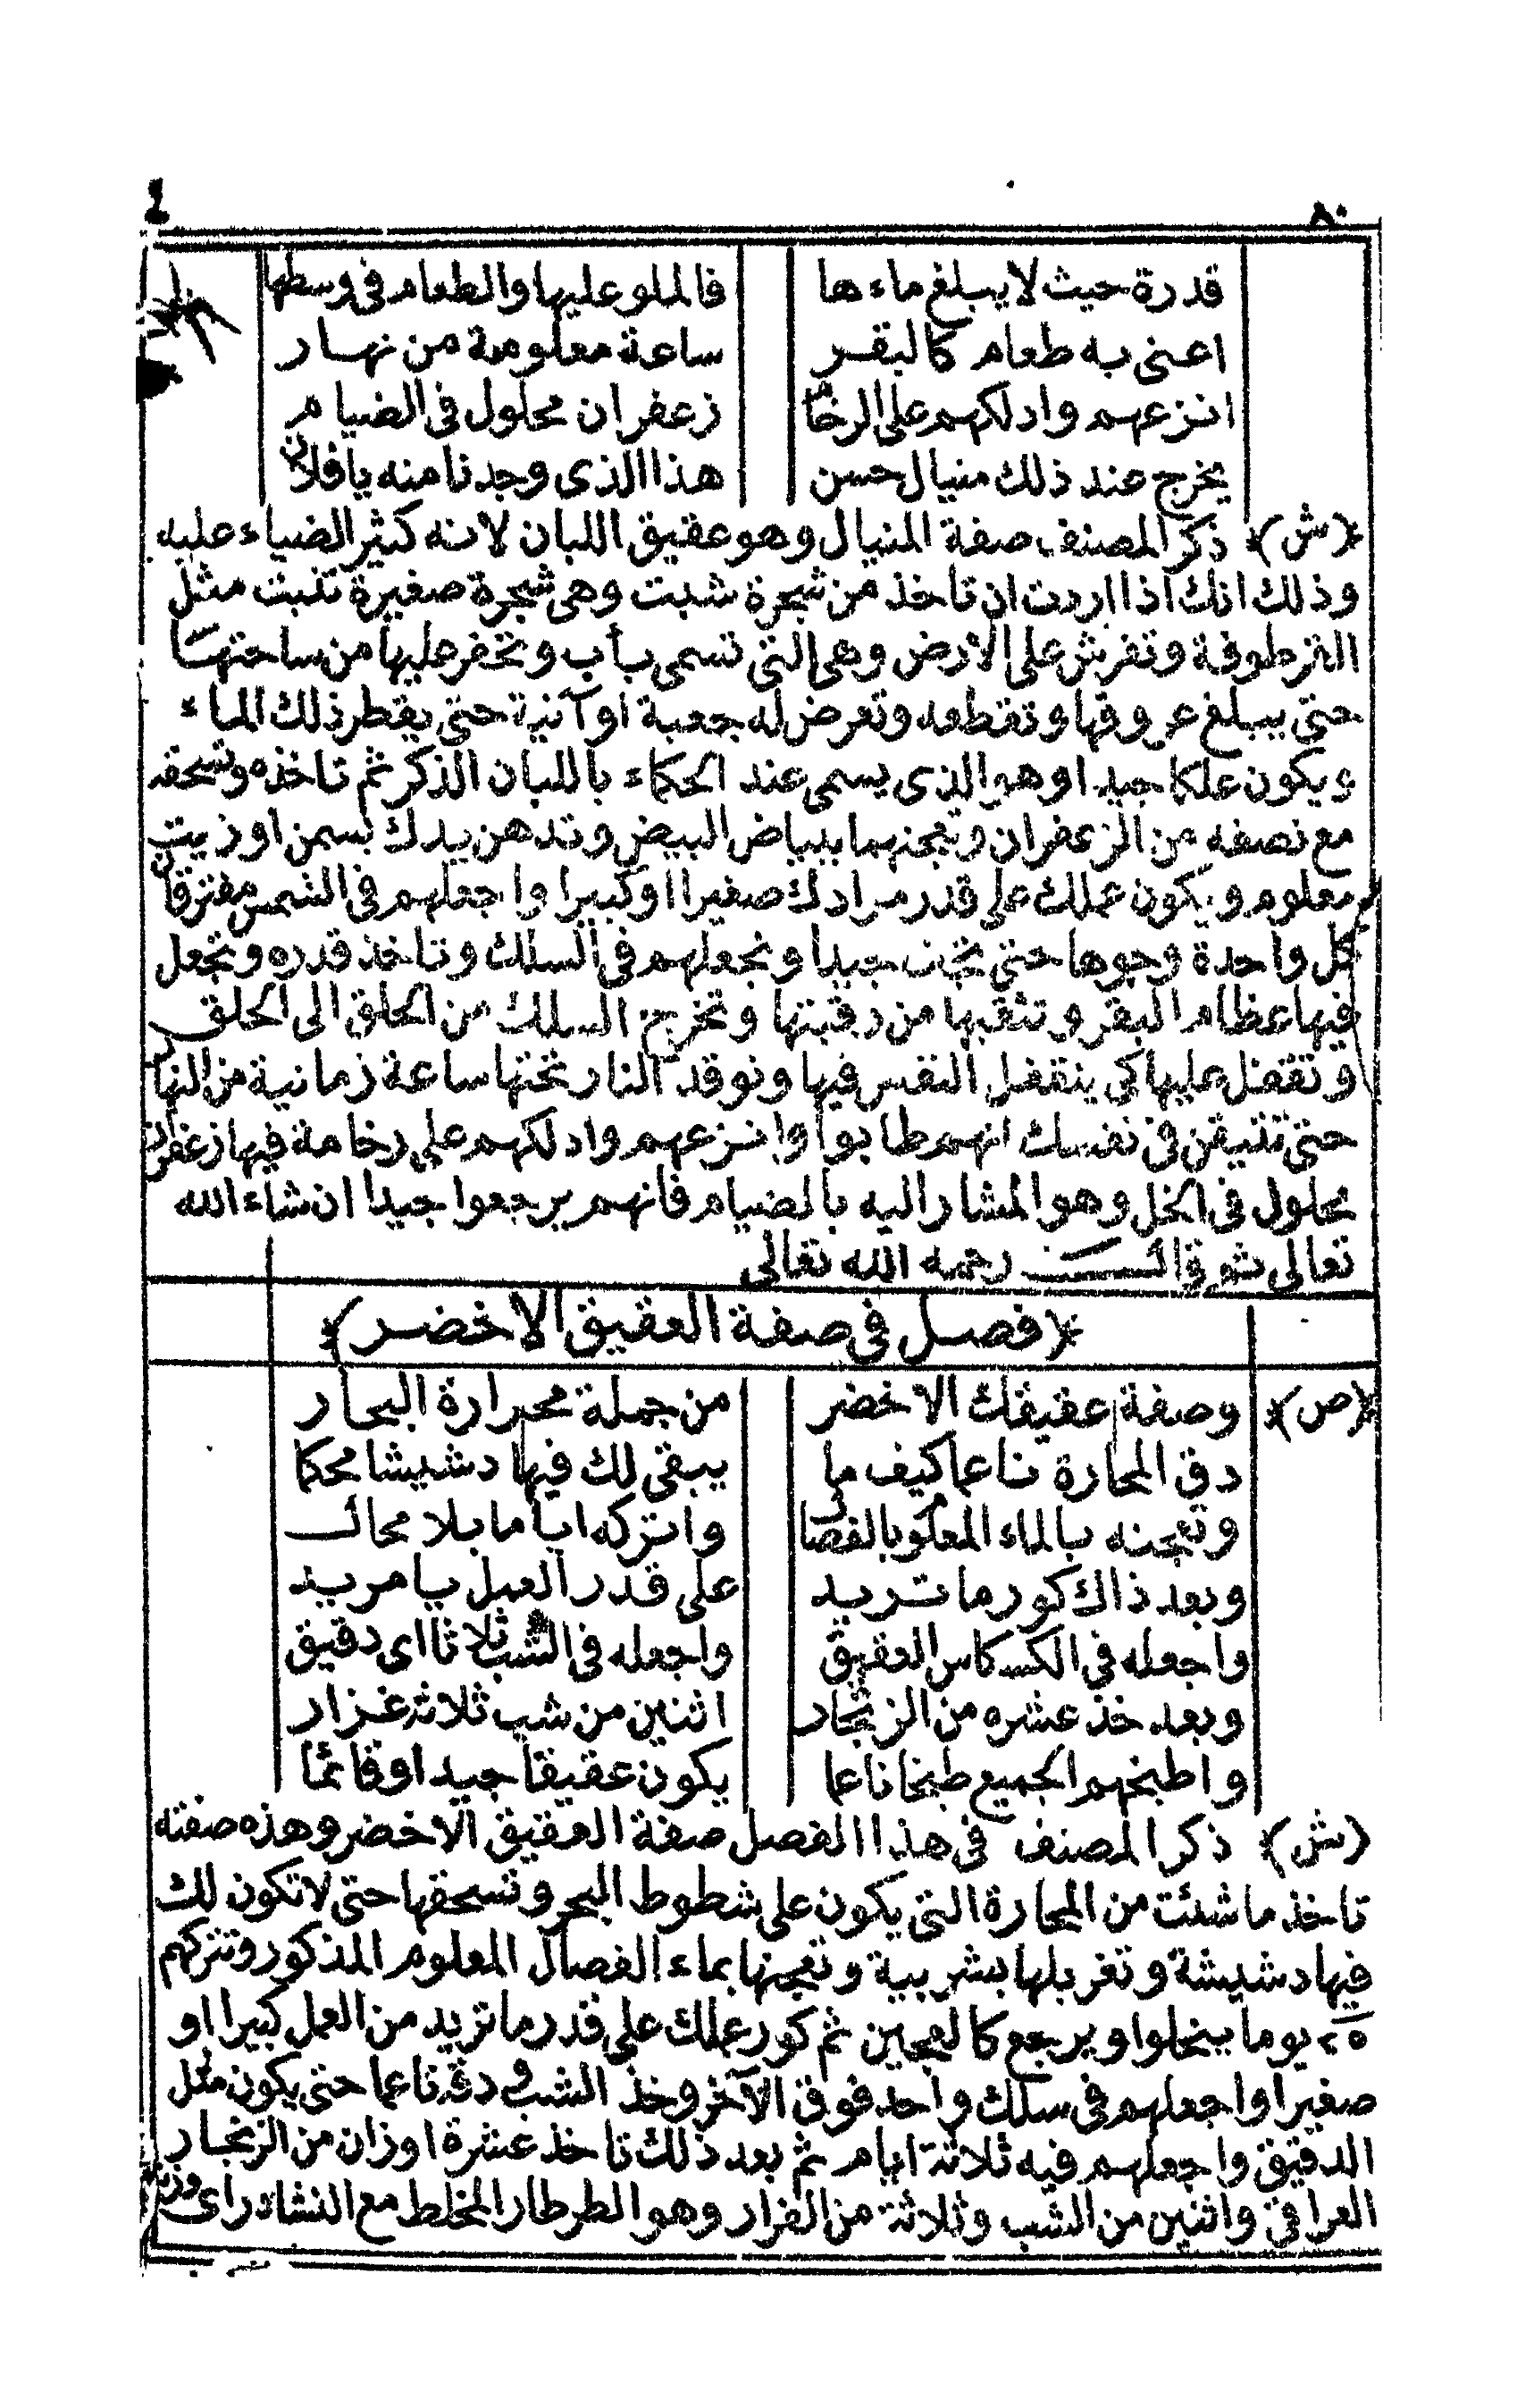 ٨٠
قدرة حيث لا يبلغ ماءها فاملو عليها والطعام فى وسطها
اعنى به طعام كالبقر ساعة معلومة من نهار
انزعهم وادلكهم على الرخام زعفران محلول فى الضيام
يخرج عند ذلك منيال حسن هذا الذى وجدنا منه يافلان
﴿ش﴾ ذكر المصنف صفة المنيال وهو عقيق اللبان لانه كثير الضياء عليه
وذلك انك اذا اردت ان تاخذ من شجرة شبت وهى شجرة صغيرة تنبت مثل
الترطوفة وتفرش على الارض وهى التى تسمى بأب وتحفر عليها من ساحتها
حتى يبلغ عروقها وتقطعه وتعرض له جعبة او آنية حتى يقطر ذلك الماء
ويكون علكا جيدا وهو الذى يسمى عند الحكماء باللبان الذكر ثم تاخذه وتسحقه
مع نصفه من الزعفران وتعجنهما ببياض البيض وتدهن يدك بسمن او زيت
معلوم ويكون عملك على قدر مرادك صغيرا او كبيرا واجعلهم فى الشمس مفترقان
كل واحدة وجوها حتى تجف جيدا وتجعلهم فى السلك وتاخذ قدره وتجعل
فيها عظام البقر وتثقبها من رقبتها وتخرج السلك من الحلق الى الحلق
وتقفل عليها كى ينقفل النفس فيها وتوقد النار تحتها ساعة زمانية من النهار
حتى تتيقن فى نفسك انهم طابوا وانزعهم وادلكهم على رخامة فيها زعفران
محلول فى الخل وهو المشار اليه بالضيام فانهم يرجعوا جيدا ان شاء الله
تعالى ثم قال رحمه الله تعالى
﴿فصل فى صفة العقيق الاخضر﴾
﴿ص﴾ وصفة عقيقك الاخضر من جملة محرارة البحار
دق المحارة ناعما كيف ما يبقى لك فيها دشيشا محكما
وتعجنه بالماء المعكوم بالفصال واتركه اياما بلا محال
وبعد ذاك كور ما تريد على قدر العمل يا مريد
واجعله فى الكسكاس العقيق واجعله فى الشب ثلاثا اى دقيق
وبعد خذ عشره من الزنجار اثنين من شب ثلاثه غزار
واطبخهم الجميع طبخا ناعما يكون عقيقا جيدا وقائما
﴿ش﴾ ذكر المصنف فى هذا الفصل صفة العقيق الاخضر وهذه صفته
تاخذ ما شئت من المحارة التى يكون على شطوط البحر وتسحقها حتى لا تكون لك
فيها دشيشة وتغربلها بشربية وتعجنها بماء الفصال المعلوم المذكور وتتركهم
٢٥ يوما ينحلوا ويرجع كالعجين ثم كور عملك على قدر ما تريد من العمل كبيرا او
صغيرا واجعلهم فى سلك واحد فوق الآخر وخذ الشب ودقه ناعما حتى يكون مثل
الدقيق واجعلهم فيه ثلاثة ايام ثم بعد ذلك تاخذ عشرة اوزان من الزنجار
العراقى واثنين من الشب وثلاثة من الغزار وهو الطرطار المخلط مع النشادر اى